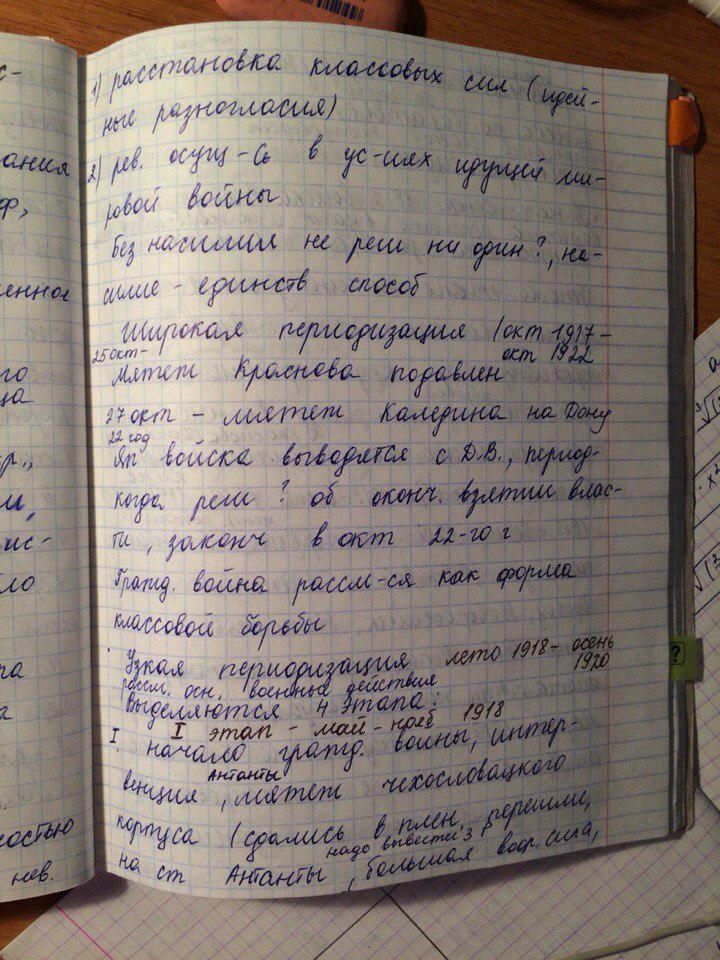 1) расстановка классовых сил (идей-
ные разногласия)
2) рев. осущ-сь в ус-иях идущей ми-
ровой войны
Без насилия не реш ни один ?, на-
силие - единств способ
Широкая периодизация (окт 1917 -
окт 1922
25 окт -
Мятеж Краснова подавлен
27 окт - мятеж Каледина на Дону
22 год
Яп войска выводятся с Д.В., период-
когда реш ? об оконч. взятии влас-
ти, законч в окт 22-го г
Гражд. война рассм-ся как форма
классовой борьбы
Узкая периодизация лето 1918 - осень
1920
рассм. осн. военные действия
Выделяются 4 этапа:
I этап - май - нояб 1918
I начало гражд. войны, интер-
Антанты
венция, мятеж чехословацкого
корпуса (сдались в плен, перешли,
надо вывести з
на ст Антанты, большая воор. сила,
с-
ания
ф,
енног
го
ца
р.,
и,
ис-
ло
та
а
остью
нев.
?